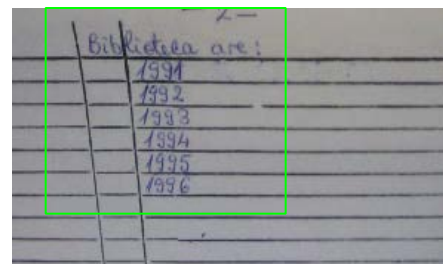 - 2 -
Biblioteca are:
1991
1992
1993
1994
1995
1996